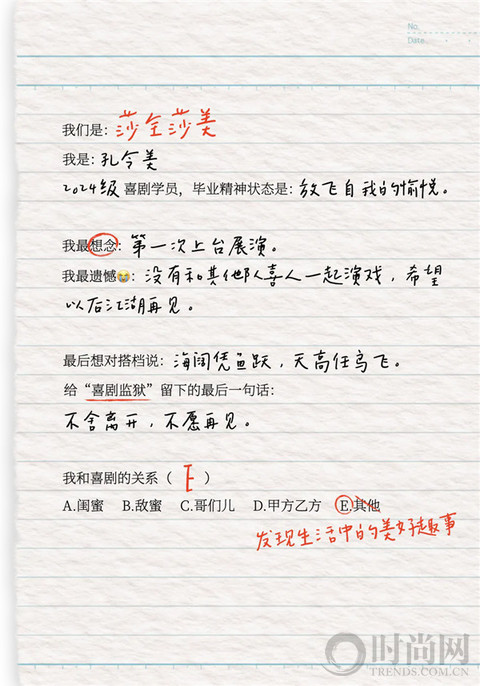 No.
Date.
我们是：莎全莎美
我是：孔令美
2024级 喜剧学员，毕业精神状态是：放飞自我的愉悦。
我最想念：第一次上台展演。
我最遗憾😭：没有和其他队喜人一起演戏，希望
以后江湖再见。
最后想对搭档说：海阔凭鱼跃，天高任鸟飞。
给“喜剧监狱”留下的最后一句话：
不舍离开，不愿再见。
我和喜剧的关系（ E ）
A.闺蜜 B.敌蜜 C.哥们儿 D.甲方乙方 E.其他
发现生活中的美好趣事
时尚网
TRENDS.COM.CN